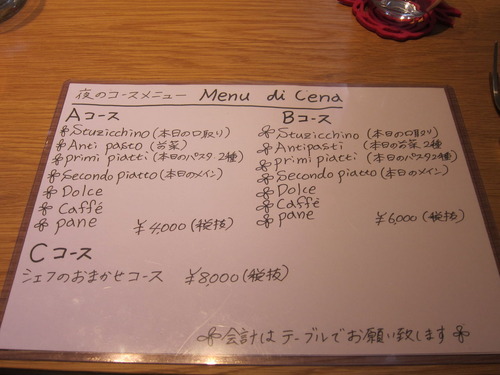 夜のコースメニュー Menu di Cena
Aコース
Stuzicchino (本日の口取り)
Anti pasto (前菜)
primi piatti (本日のパスタ 2種)
Secondo piatto (本日のメイン)
Dolce
Caffé
pane
¥4,000 (税抜)
Bコース
Stuzicchino (本日の口取り)
Antipasti (本日の前菜 2種)
primi piatti (本日のパスタ2種)
Secondo piatto (本日のメイン)
Dolce
Caffé
pane
¥6,000 (税抜)
Cコース
シェフのおまかせコース ¥8,000 (税抜)
会計はテーブルでお願い致します